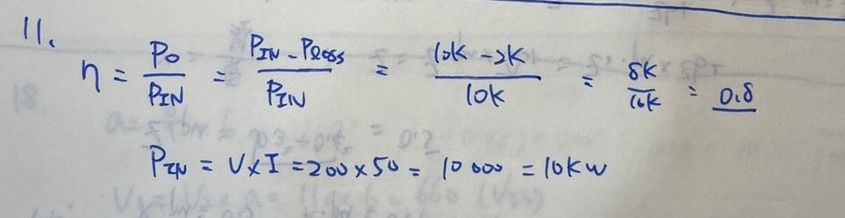 11.
η = Po/PIN = PIN - Ploss/PIN = 10K - 2K/10K = 8K/10K = 0.8
PIN = V×I = 200×50 = 10000 = 10KW